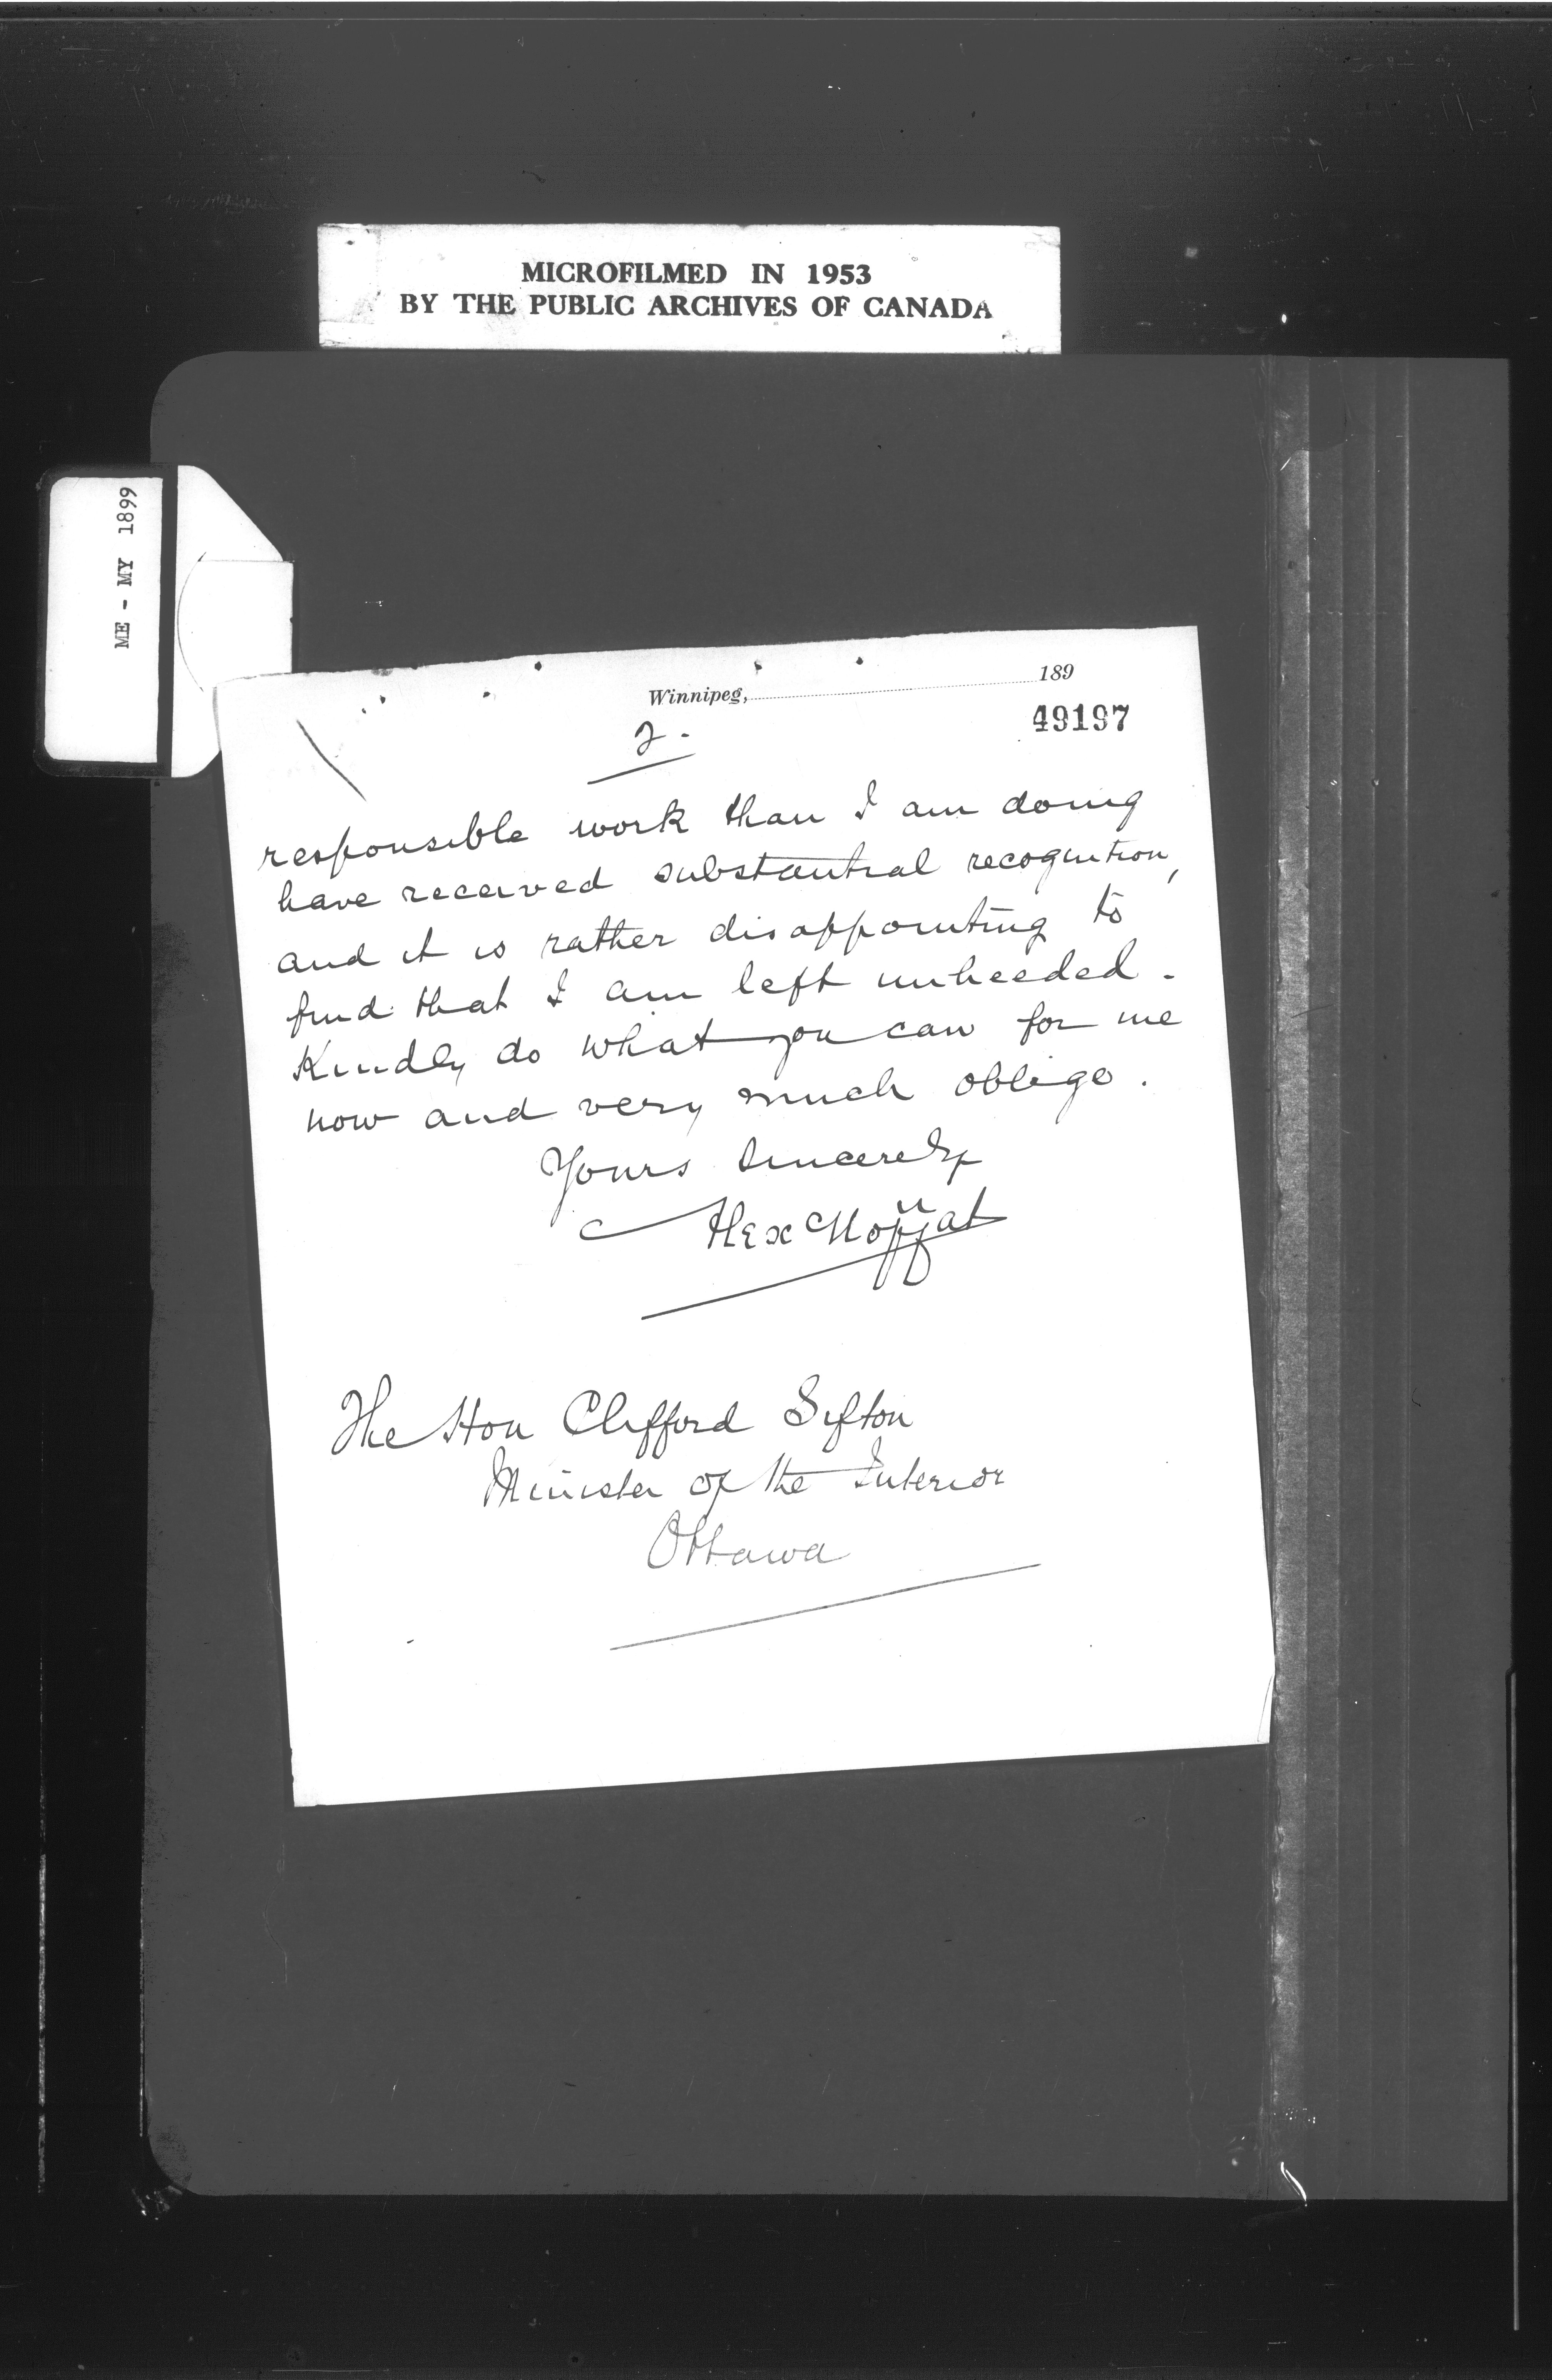 MICROFILMED IN 1953
BY THE PUBLIC ARCHIVES OF CANADA
ME - MY 1899
Winnipeg, 189
49197
2.
responsible work than I am doing
have received substantial recognition,
and it is rather disappointing to
find that I am left unheeded.
Kindly do what you can for me
now and very much oblige.
Yours Sincerely
Alex Moffat
The Hon Clifford Sifton
Minister of the Interior
Ottawa